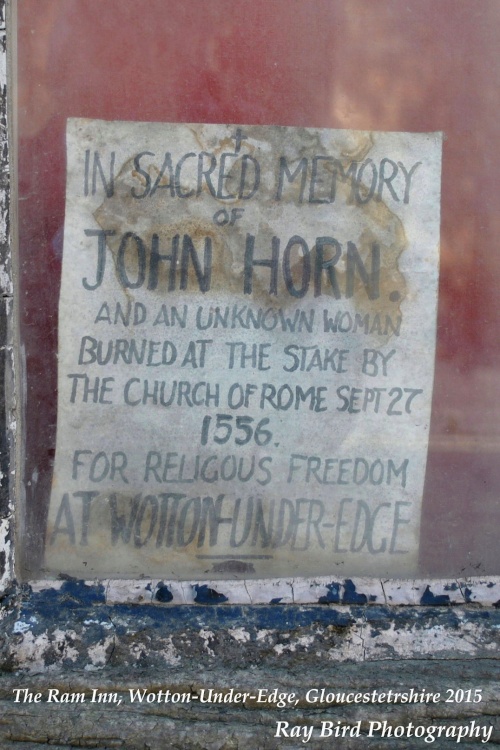 IN SACRED MEMORY
OF
JOHN HORN.
AND AN UNKNOWN WOMAN
BURNED AT THE STAKE BY
THE CHURCH OF ROME SEPT 27
1556.
FOR RELIGOUS FREEDOM
AT WOTTON-UNDER-EDGE
The Ram Inn, Wotton-Under-Edge, Gloucestetrshire 2015
Ray Bird Photography